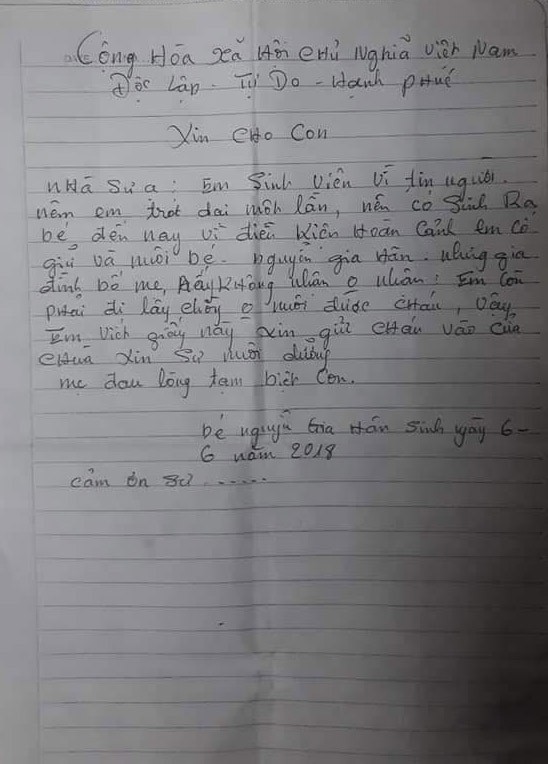 Cộng Hòa Xã Hội Chủ Nghiã Việt Nam
Độc Lập - Tự Do - Hạnh Phúc
Xin Cho Con
nhà Sư ạ: Em Sinh Viên Vì tin người.
nêm em trót dại môt lần, nên có Sinh Ra
bé, đến nay vì điều kiên Hoàn Cảnh em cố
giữ và nuôi bé. nguyễn gia Hân. nhưng gia
đình bố mẹ, không nhân o nhân: Em Còn
phải đi lấy chồng o nuôi được cháu, Vây
Em Viêt giấy này xin gửi cháu vào Cửa
chùa xin Sư nuôi dưỡng
mẹ đau lòng tạm biêt Con.
bé nguyễn Gia Hân Sinh ngày 6-
6 năm 2018
cảm ơn Sư ......